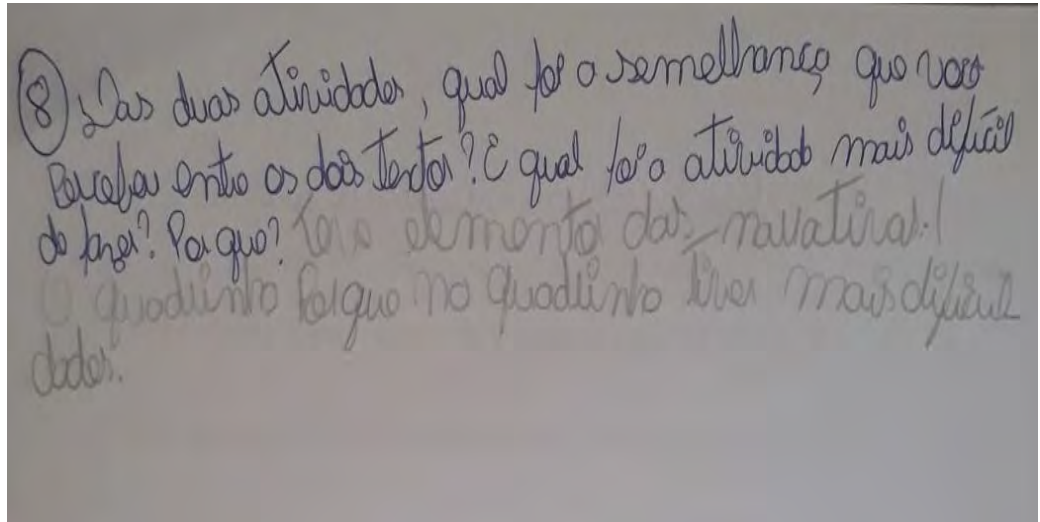 8) Das duas atividades, qual foi a semelhança que você
Percebeu entre os dois textos? E qual foi a atividade mais difícil
de fazer? Por que? Foi o elemento das narrativas.
O quadrinho Porque no quadrinho tiver mais dificul
dades.